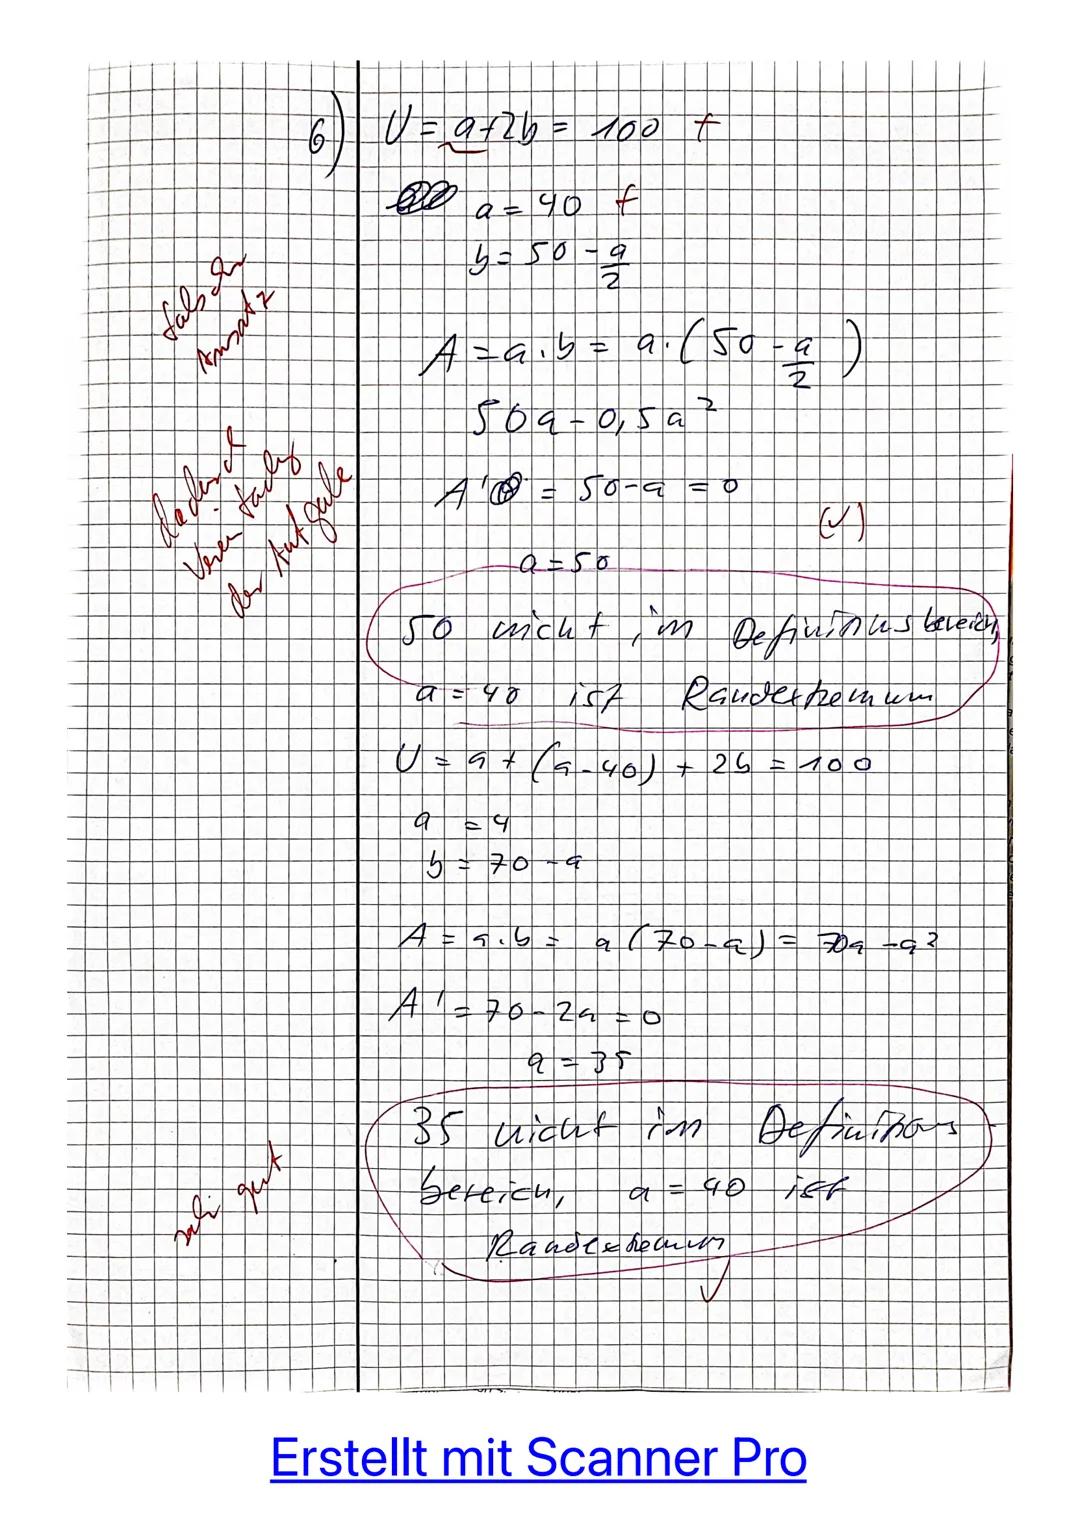 6) U = a+2b = 100 f
a = 40 f
b = 50 - a/2
falscher
Ansatz
A = a · b = a · (50 - a/2)
50a - 0,5a²
dadurch
Vereinfachg
der Aufgabe
A' = 50 - a = 0
(✓)
a = 50
50 nicht im Definitionsbereich,
a = 40 ist Randextremum
U = a + (a - 40) + 2b = 100
a = 4
b = 70 - a
A = a · b = a (70 - a) = 70a - a²
A' = 70 - 2a = 0
a = 35
35 nicht im Definitions
bereich, a = 40 ist
sehr gut
Randextremum
✓
Erstellt mit Scanner Pro